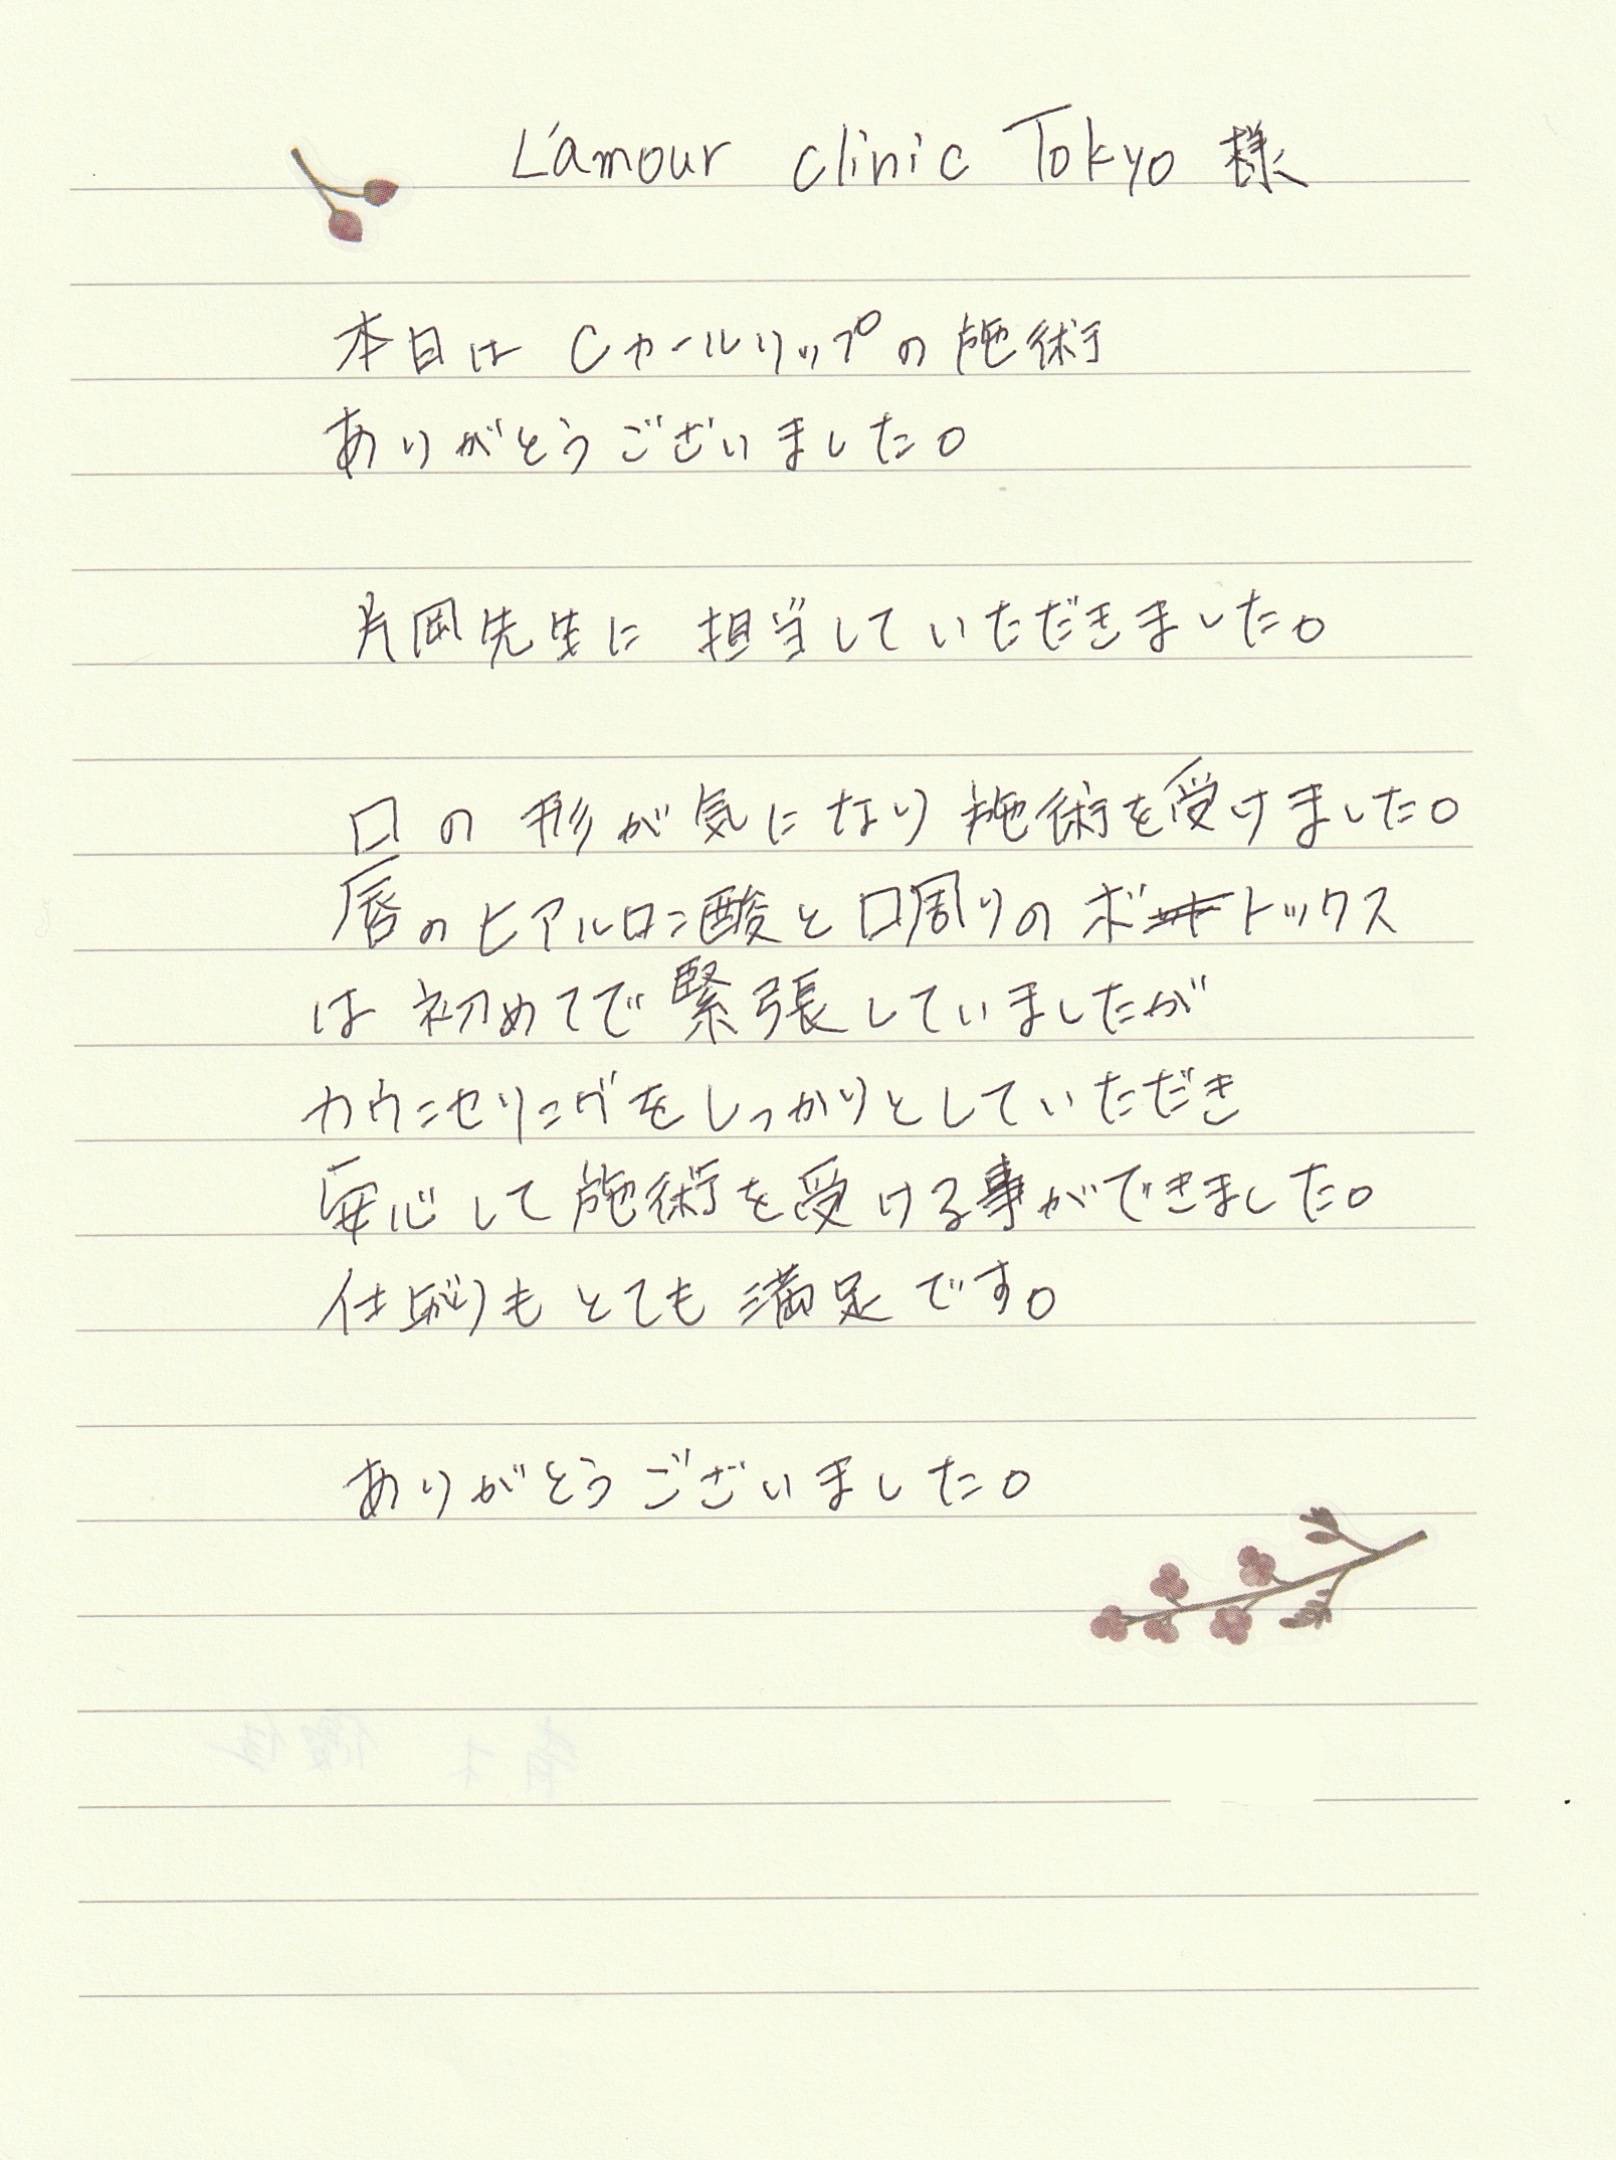 L'amour clinic Tokyo 様
本日は Cカールリップの施術
ありがとうございました。
片岡先生に 担当していただきました。
口の形が気になり施術を受けました。
唇のヒアルロン酸と口周りのボトックス
は初めてで緊張していましたが
カウンセリングをしっかりとしていただき
安心して施術を受ける事ができました。
仕上がりもとても満足です。
ありがとうございました。